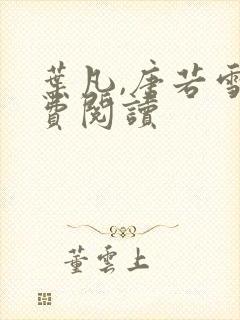 葉凡,唐若雪
費閱讀
董雲上